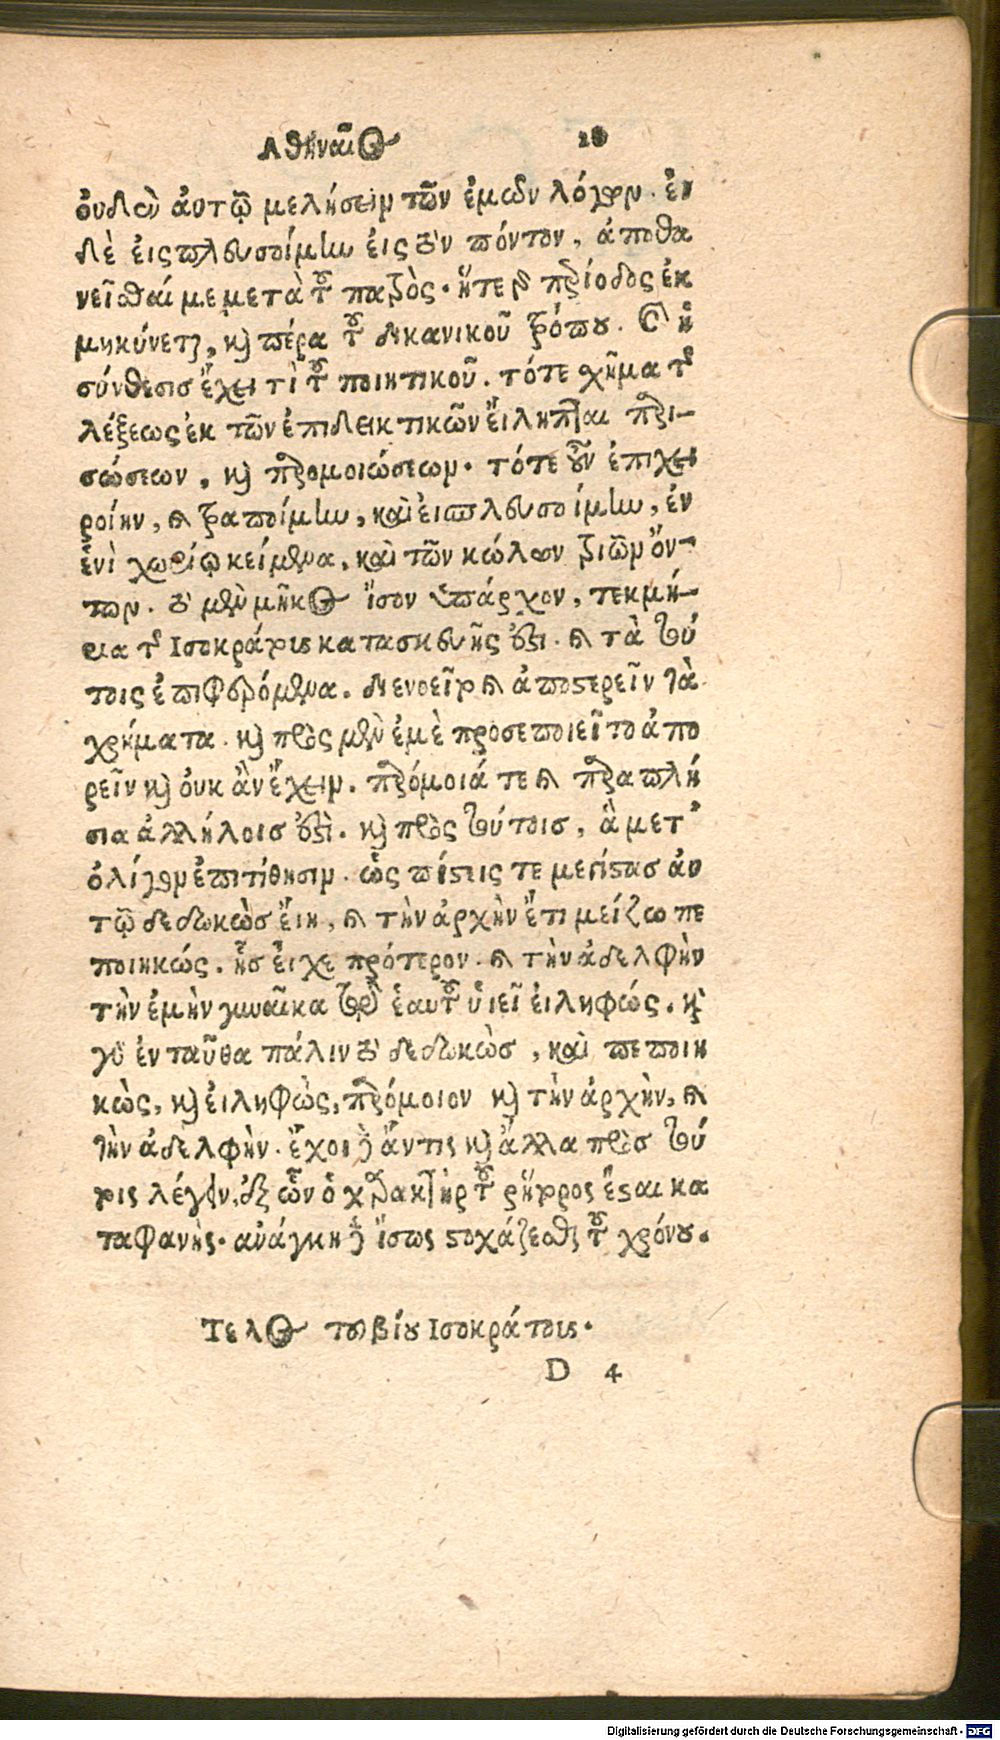 Ἀθηναῖος 28
οὐδὲν ἀυτῷ μελήσειν τῶν ἐμῶν λόγων. ἐὰν
δὲ ἐισπλευσοίμην ἐις τὸν πόντον, ἀποθα
νεῖσθαί με μετὰ τοῦ πατρὸς. ἥτε γὰρ περίοδος ἐκ
μηκύνεται, καὶ πέρα τοῦ δικανικοῦ τρόπου. Καὶ ἡ
σύνθεσισ ἔχει τὶ τοῦ ποιητικοῦ. τότε χῆμα τῆς
λέξεως ἐκ τῶν ἐπιδεικτικῶν ἔιληπται παρι-
σώσεων, καὶ παρομοιώσεων. τότε οὖν ἐπιχει
ροίην, καὶ τραποίμην, καὶ ἐισπλευσοίμην, ἐν
ἑνὶ χωρίῳ κείμενα, καὶ τῶν κώλων τριῶν ὄν-
των. τὸ μὲν μῆκος ἴσον ὑπάρχον, τεκμή-
ρια τῆς Ἰσοκράτους κατασκευῆς ἐστι. καὶ τὰ τού
τοις ἐπιφερόμενα. διενοεῖτο καὶ ἀποστερεῖν τὰ
χρήματα. καὶ πρὸς μὲν ἐμὲ προσεποιεῖτο ἀπο
ρεῖν καὶ ὀυκ ἂν ἔχειν. παρόμοιά τε καὶ παραπλή
σια ἀλλήλοισ ἐστὶ. καὶ πρὸς τούτοισ, ἃ μετ'
ὀλίγον ἐπιτίθησιν. ὡς πίστεις τε μεγίστασ ἀυ
τῷ δεδωκὼσ ἔιη, καὶ τὴν ἀρχὴν ἔτι μείζω πε
ποιηκώς. ἧσ ἔιχε πρότερον. καὶ τὴν ἀδελφὴν
τὴν ἐμὴν γυναῖκα τῷ ἑαυτοῦ ὑιεῖ ἐιληφώς. καὶ
γὰρ ἐνταῦθα πάλιν τὸ δεδωκὼσ, καὶ πεποιη
κὼς, καὶ ἐιληφὼς, παρόμοιον καὶ τὴν ἀρχὴν, καὶ
τὴν ἀδελφὴν. ἔχοι δ' ἄν τις καὶ ἄλλα πρὸσ τού
τοις λέγειν, ἐξ ὧν ὁ χαρακτὴρ τοῦ ῥήτορος ἔσται κα
ταφανὴς. ἀνάγκη δ' ἴσως στοχάζεσθαι τοῦ χρόνου.
Τελος τοῦ βίου Ἰσοκράτους.
D 4
Digitalisierung gefördert durch die Deutsche Forschungsgemeinschaft - DFG